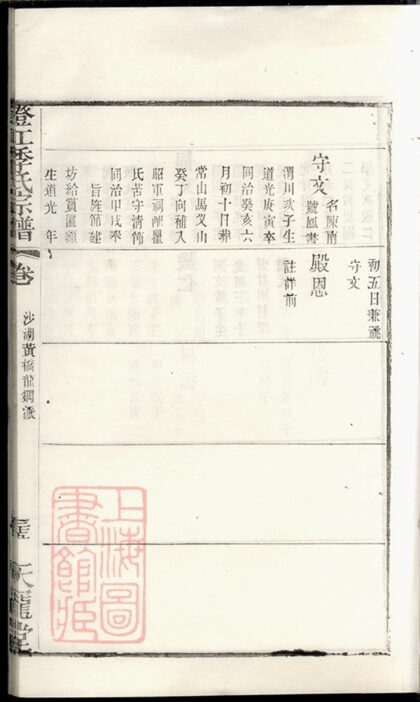 初五日兼祧
守文
守文 名陳南
號鳳書
渭川次子生
道光庚寅卒
同治癸亥六
月初十日葬
常山馬叉山
癸丁向補入
昭軍祠
氏苦守清節
同治甲戌奉
旨旌節建
坊給賞匾額
生道光 年
殿恩 註詳前
澄江季氏宗譜
卷
沙湖黃橋龍鋼派
天寵堂
上海圖書館藏